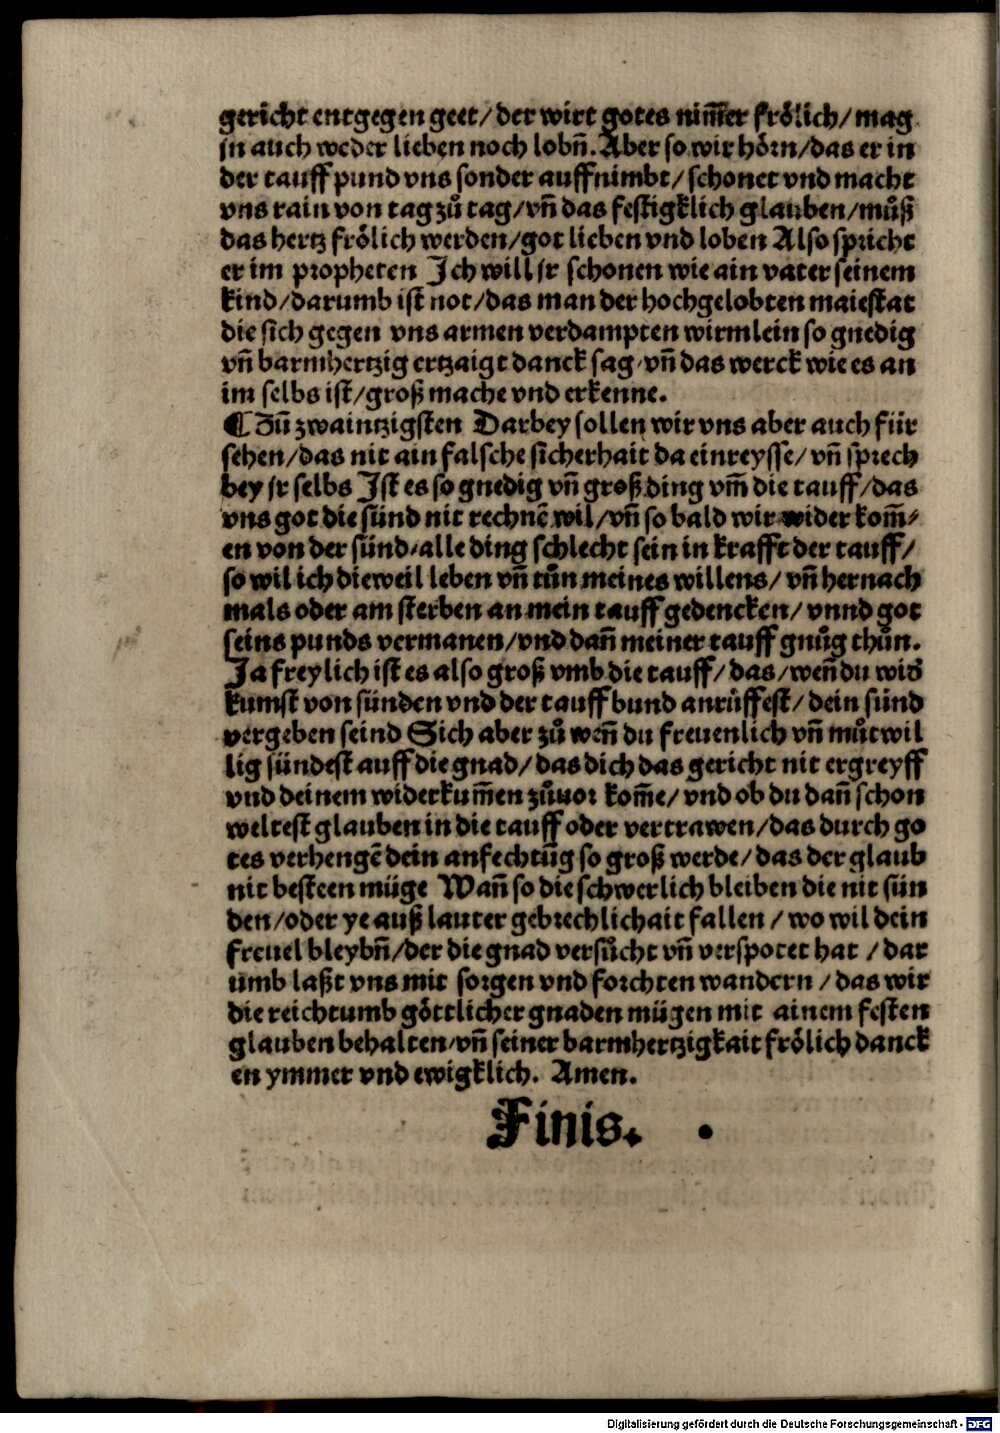 gericht entgegen geet/ der wirt gotes nim̃er frölich/ mag
jn auch weder lieben noch lobñ. Aber so wir hörn/das er in
der tauff pund vns sonder auffnimbt/ schonet vnd macht
vns rain von tag zů tag/ vñ das festigklich glauben/můß
das hertz frölich werden/got lieben vnd loben Also spricht
er im propheten Jch will jr schonen wie ain vater seinem
kind/darumb ist not/das man der hochgelobten maiestat
die sich gegen vns armen verdampten wirmlein so gnedig
vñ barmhertzig ertzaigt danck sag/vñ das werck wie es an
im selbs ist/groß mache vnd erkenne.
¶ Zũ zwaintzigsten Darbey sollen wir vns aber auch für
sehen/das nit ain falsche sicherhait da einreysse/ vñ sprech
bey jr selbs Jst es so gnedig vñ groß ding vm̃ die tauff/das
vns got die sünd nit rechnẽ wil/vñ so bald wir wider kom̃⸗
en von der sünd/alle ding schlecht sein in krafft der tauff/
so wil ich dieweil leben vñ tůn meines willens/ vñ hernach
mals oder am sterben an mein tauff gedencken/ vnnd got
seins punds vermanen/vnd dañ meiner tauff gnůg thůn.
Ja freylich ist es also groß vmb die tauff/ das/weñ du wid̕
kumst von sünden vnd der tauff bund anrůffest/ dein sünd
vergeben seind Sich aber zů weñ du freuenlich vñ můtwil
lig sündest auff die gnad/ das dich das gericht nit ergreyff
vnd deinem widerkum̃en zůuor kom̃e/ vnd ob du dañ schon
weltest glauben in die tauff oder vertrawen/das durch go
tes verhengẽ dein anfechtũg so groß werde/ das der glaub
nit besteen müge Wañ so die schwerlich bleiben die nit sün
den/oder ye auß lauter gebrechlichait fallen / wo wil dein
freuel bleybñ/der die gnad versůcht vñ verspotet hat / dar
umb laßt vns mit sorgen vnd forchten wandern / das wir
die reichtumb göttlicher gnaden mügen mit ainem festen
glauben behalten/vñ seiner barmhertzigkait frölich danck
en ymmer vnd ewigklich. Amen.
Finis.
Digitalisierung gefördert durch die Deutsche Forschungsgemeinschaft - DFG